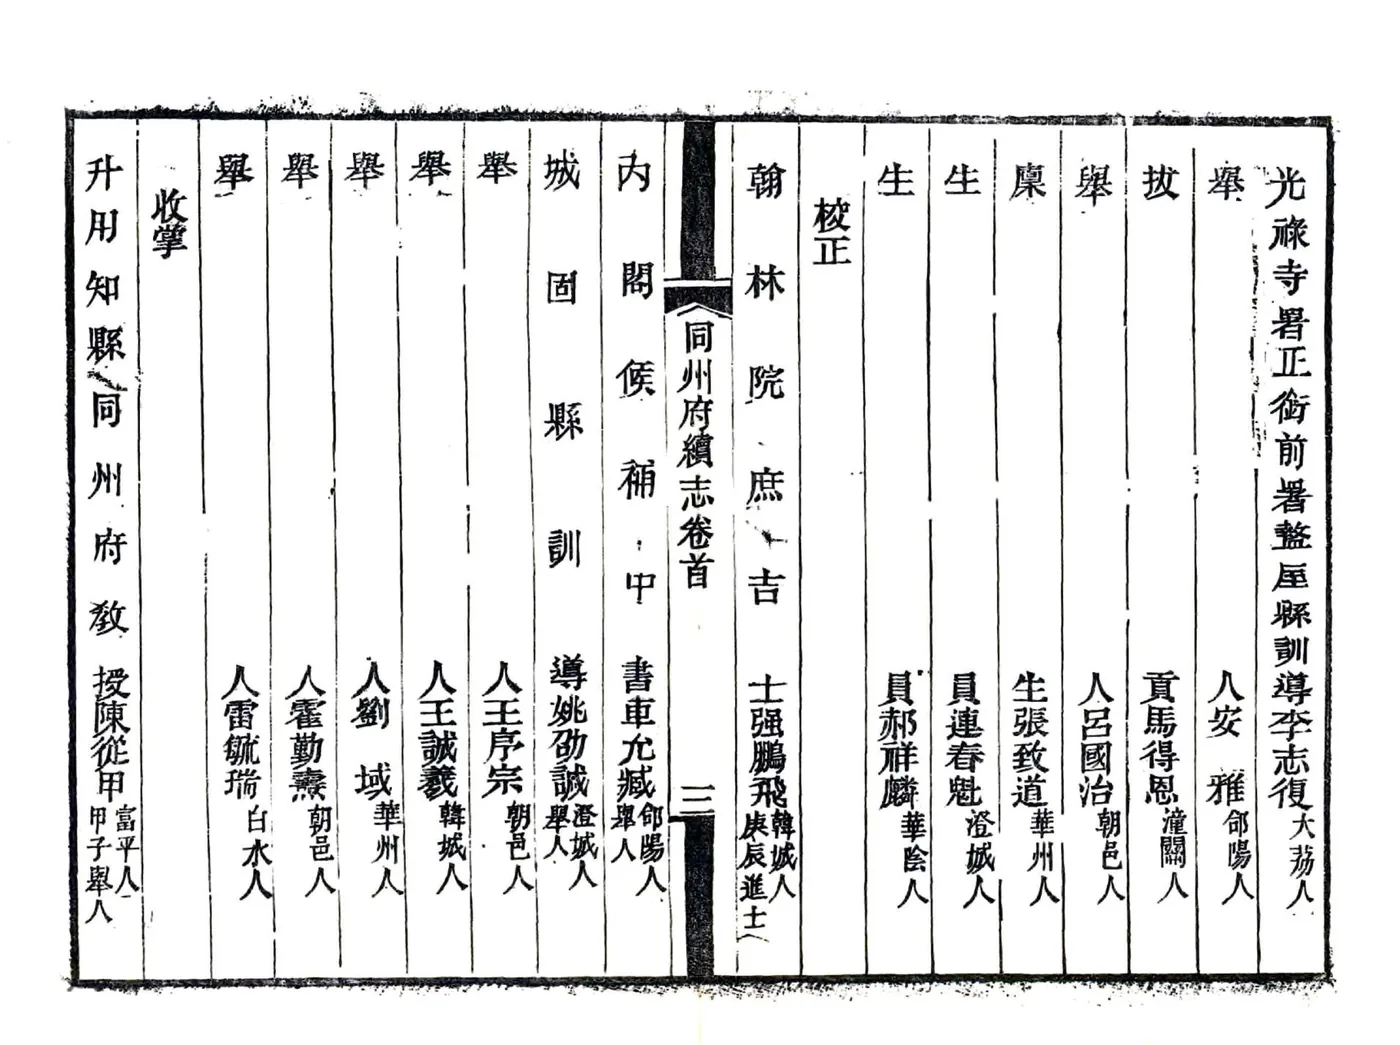 光祿寺署正銜前署盩厔縣訓導李志復大荔人
舉人安雅郃陽人
拔貢馬得恩潼關人
舉人呂國治朝邑人
廩生張致道華州人
生員連春魁澄城人
生員郝祥麟華陰人
校正
翰林院庶吉士强鵬飛韓城人庚辰進士
同州府續志卷首
三
內閣候補中書車允臧郃陽人舉人
城固縣訓導姚劭諴澄城人舉人
舉人王序宗朝邑人
舉人王誠羲韓城人
舉人劉域華州人
舉人霍勤燾朝邑人
舉人雷毓瑞白水人
收掌
升用知縣同州府教授陳從甲富平人甲子舉人